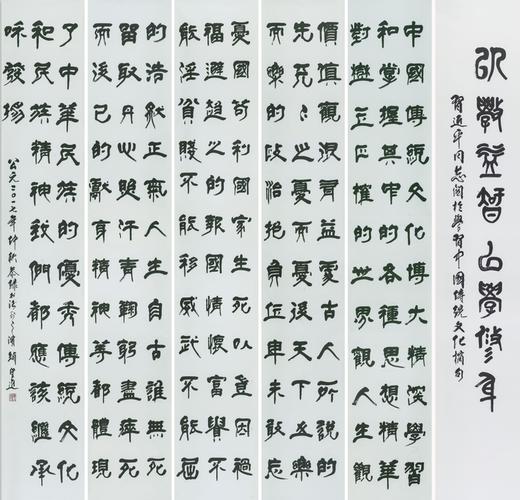 以學益智以學修身
習近平同志關於學習中國傳統文化摘句
中國傳統文化博大精深學習
和掌握其中的各種思想精華
對樹立正確的世界觀人生觀
價值觀很有益處古人所說的
先天下之憂而憂後天下之樂
而樂的政治抱負位卑未敢忘
憂國苟利國家生死以豈因禍
福避趨之的報國情懷富貴不
能淫貧賤不能移威武不能屈
的浩然正氣人生自古誰無死
留取丹心照汗青鞠躬盡瘁死
而後已的獻身精神等都體現
了中華民族的優秀傳統文化
和民族精神我們都應該繼承
咊發揚